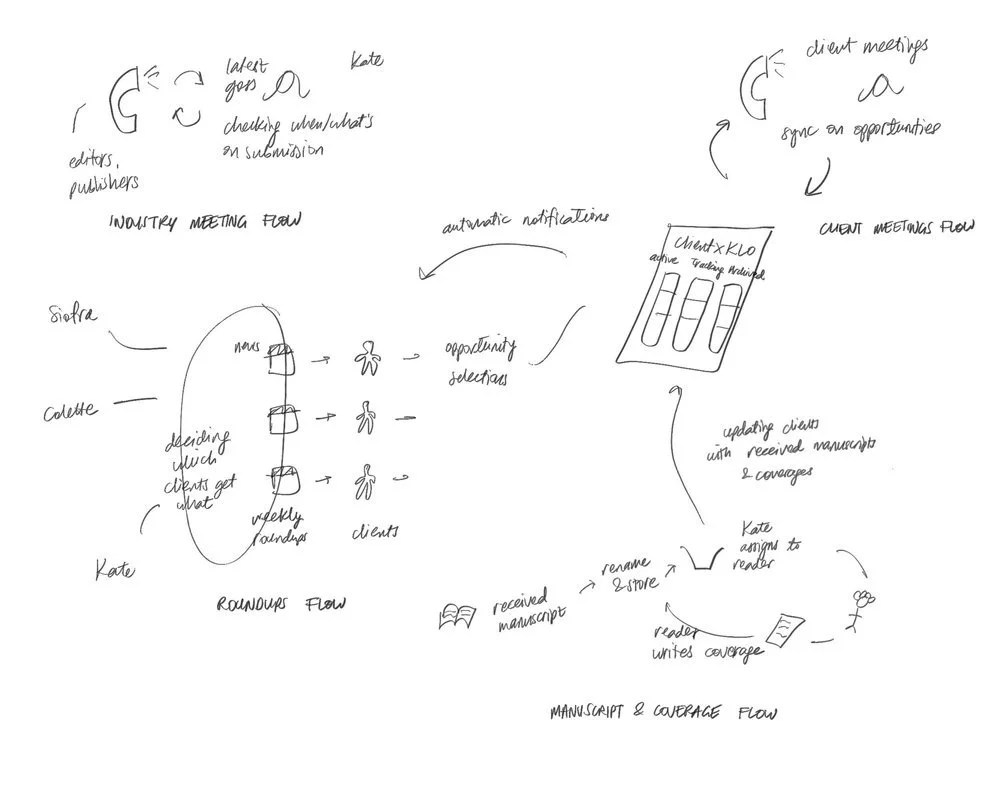 latest
goss
Kate
checking when/what's
on submission
editors,
publishers
INDUSTRY MEETING FLOW
client meetings
sync on opportunities
CLIENT MEETINGS FLOW
automatic notifications
Client x KLO
active Tracking Archived
Siofra
Colette
Kate
deciding
which
clients get
what
news
weekly
roundups
clients
opportunity
selections
ROUNDUPS FLOW
updating clients
with received manuscripts
& coverages
received
manuscript
rename
& store
Kate
assigns to
reader
reader
writes coverage
MANUSCRIPT & COVERAGE FLOW